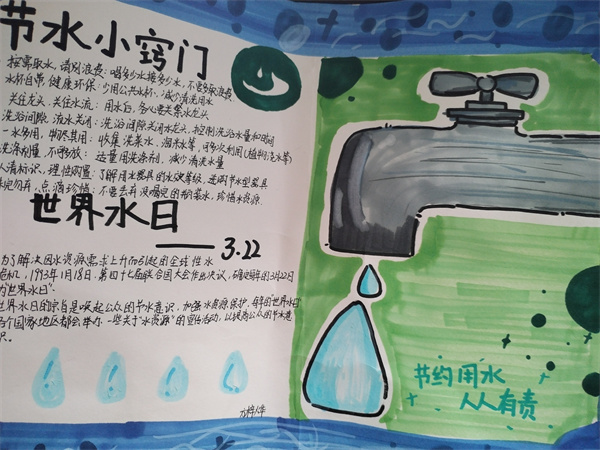 节水小窍门
按需取水,请别浪费:喝多少水接多少水,不要多取浪费
水杯自带,健康环保:少用公共水杯,减少清洗用水
关住龙头,关住水流:用水后,务必要关紧水龙头
洗浴间隙,流水关闭:洗浴间隙关闭水龙头,控制洗浴水量和时间
一水多用,物尽其用:收集洗菜水、淘米水等,可多次利用(植物浇水等)
洗涤剂量,不可够放:适量用洗涤剂,减少清洗水量
认清标识,理性购置:了解用水器具的水效等级,选购节水型器具
勿弃,点滴珍惜:不要丢弃没喝完的瓶装水,珍惜水资源
世界水日
——3.22
为了解决因水资源需求上升而引起的全球性水
危机,1993年1月18日,第四十七届联合国大会作出决议,确定每年的3月22日
为"世界水日".
世界水日的宗旨是唤起公众的节水意识,加强水资源保护.每年的世界水日
各个国家地区都会举办一些关于"水资源"的宣传活动,以提高公众的节水意
识.
节约用水
人人有责